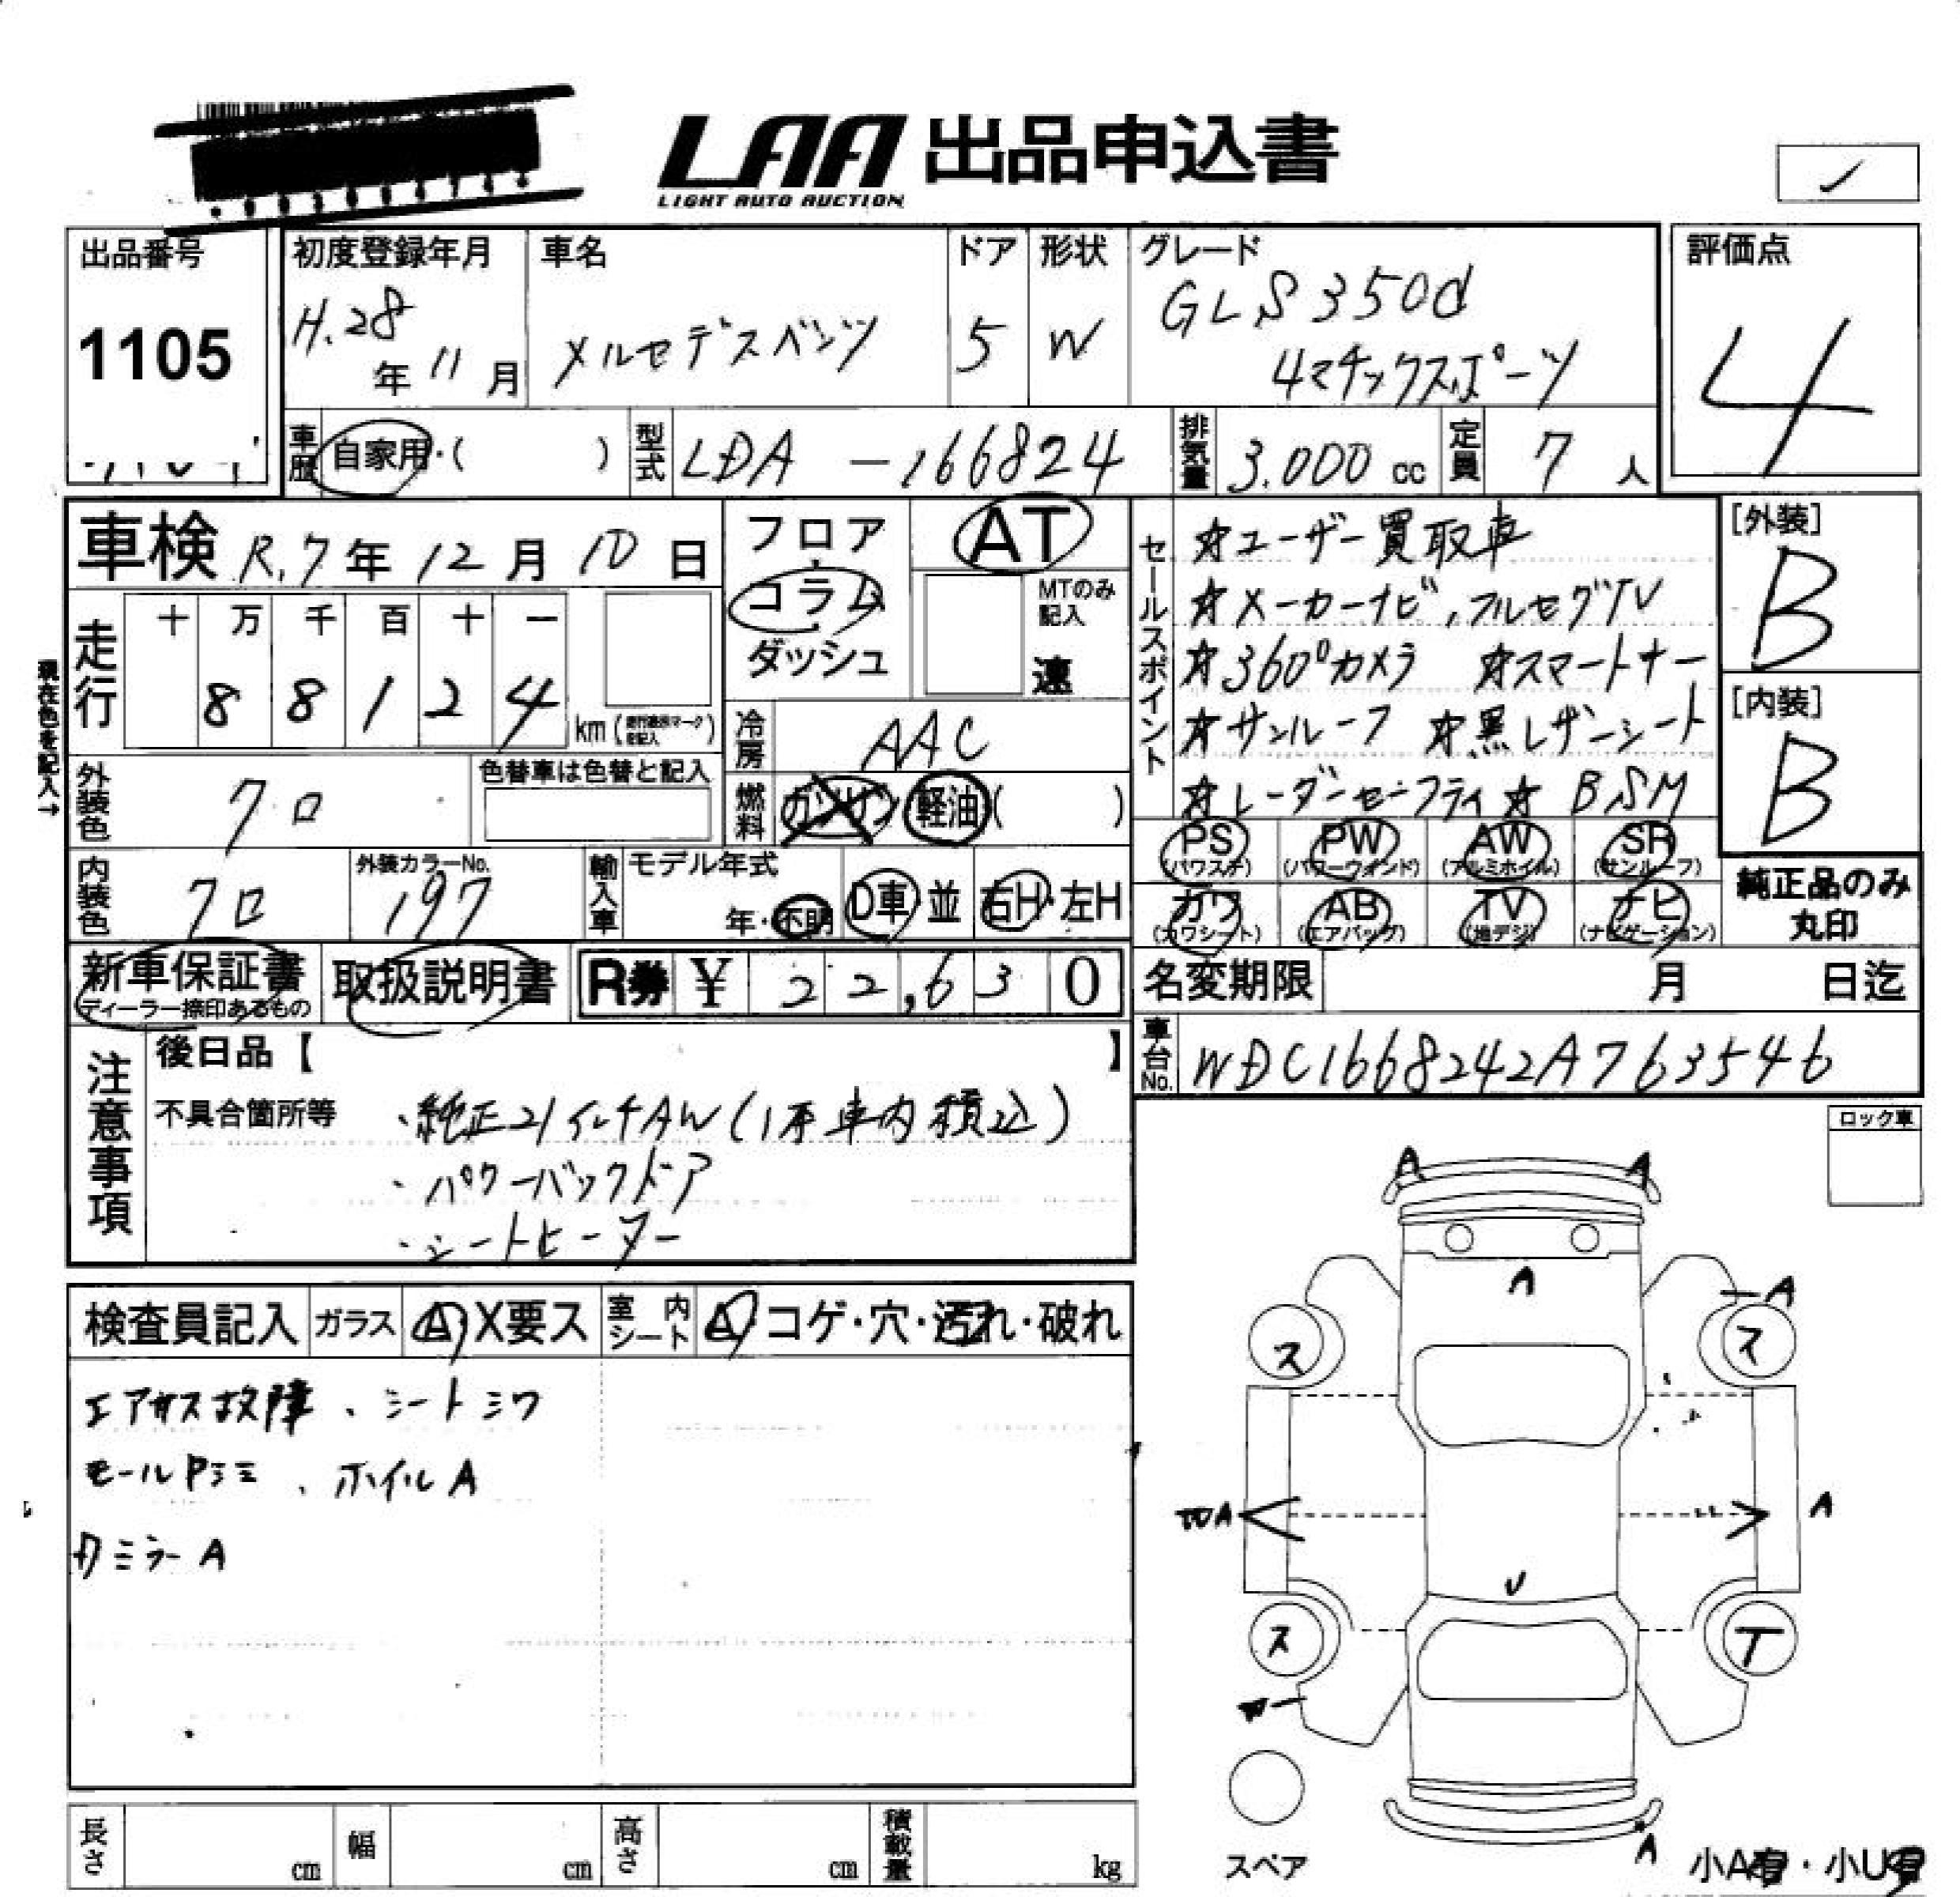 LAA 出品申込書
LIGHT AUTO AUCTION
出品番号
1105
初度登録年月
H.28年11月
車名
メルセデスベンツ
ドア
5
形状
W
グレード
GLS350d
4マチックスポーツ
評価点
4
車歴 自家用・( )
型式 LDA-166824
排気量 3.000 cc
定員 7人
車検 R.7年12月10日
現在色を記入→
走行
十 万 千 百 十 一
8 8 1 2 4 km
外装色 クロ
色替車は色替と記入
内装色 クロ
外装カラーNo.
197
フロア
コラム
ダッシュ
AT
MTのみ
記入
速
冷房 AAC
燃料 ガソリン 軽油( )
輸入車 モデル年式
年・不明 D車・並 右H・左H
セールスポイント
☆ユーザー買取車
☆メーカーナビ,フルセグTV
☆360°カメラ ☆スマートキー
☆サンルーフ ☆黒レザーシート
☆レーダーセーフティ☆BSM
[外装]
B
[内装]
B
PS (パワステ) PW (パワーウィンド) AW (アルミホイル) SR (サンルーフ)
カワ (カワシート) AB (エアバッグ) TV (地デジ) ナビ (ナビゲーション)
純正品のみ
丸印
新車保証書
ディーラー捺印あるもの
取扱説明書
R券 ¥ 22,630
名変期限 月 日迄
車台No. WDC1668242A763546
注意事項
後日品【 】
不具合箇所等 ・純正21インチAW(1本車内積込)
・パワーバックドア
・シートヒーター
ロック車
検査員記入 ガラス A・X要ス 室内シート A・コゲ・穴・汚れ・破れ
エアサス故障、シートシワ
モール内シミ、ホイルA
カミラーA
A A
A
A
ス ス
A
A
U
ス T
スペア
A
小A有・小U有
長さ cm 幅 cm 高さ cm 積載量 kg